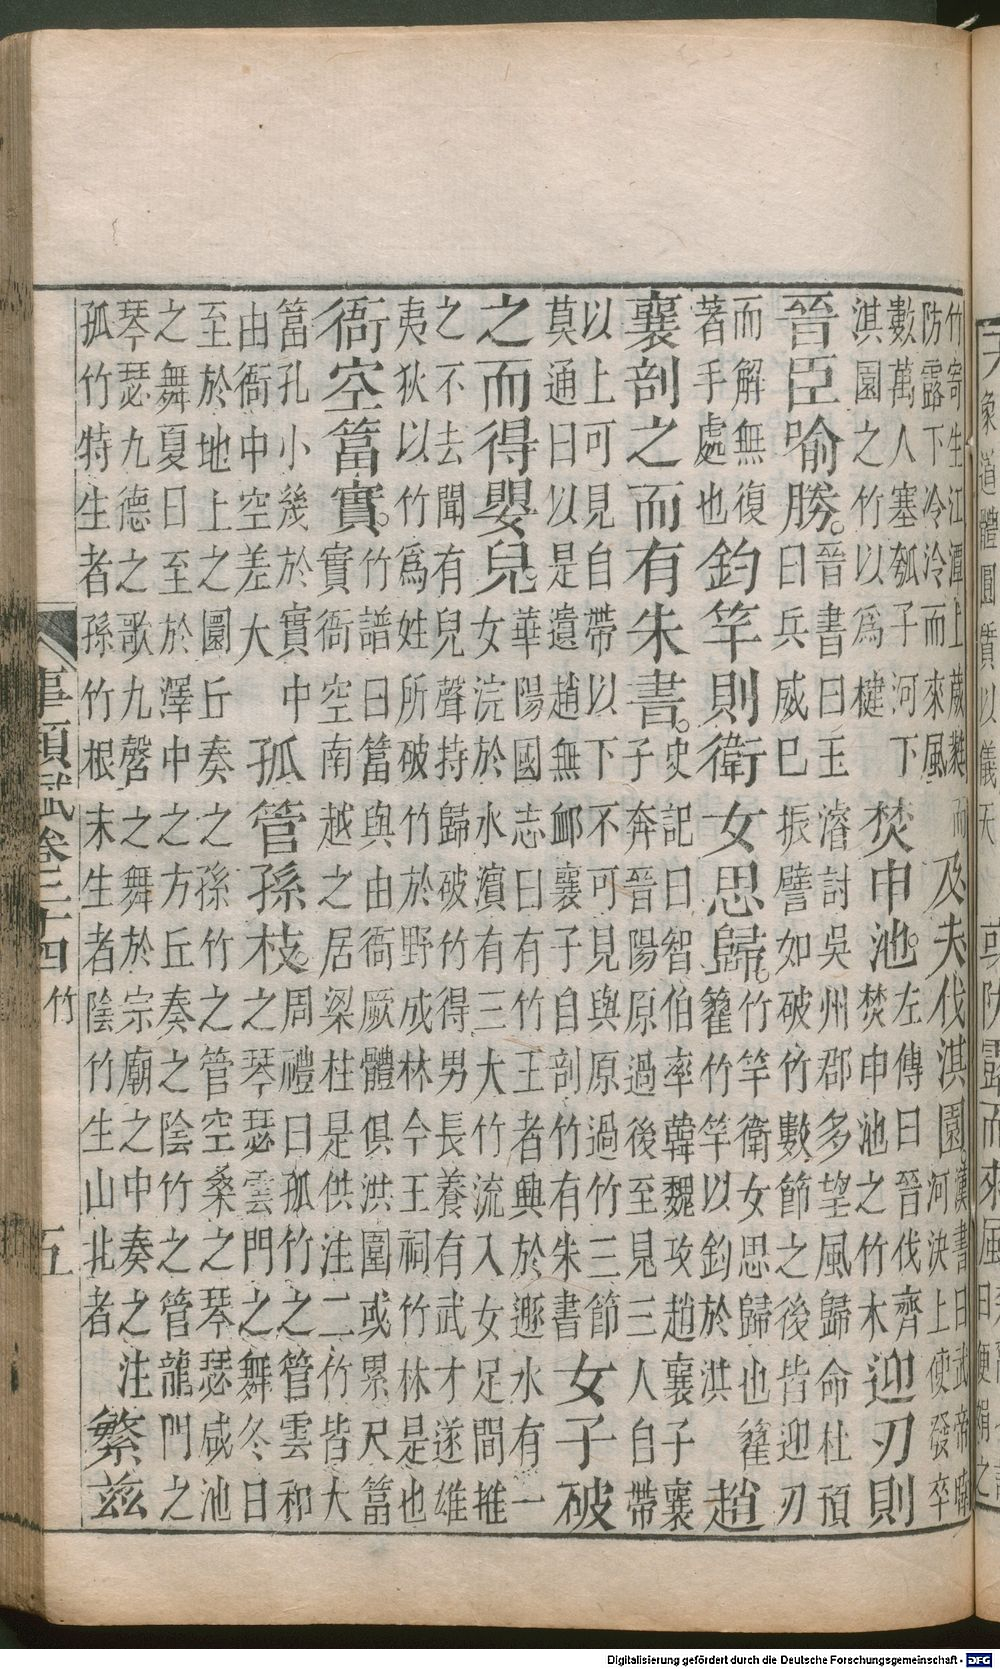 象道體圓質以儀天
或防露而來風
竹寄生江潭上葳蕤而
防露下泠泠而來風
及夫伐淇園
漢書曰武帝時
河決上使發卒
數萬人塞瓠子河下
淇園之竹以爲楗
焚申池。
左傳曰晉伐齊
焚申池之竹木
迎刃則
晉臣喻勝。
晉書曰王濬討吳州郡多望風歸命杜預
曰兵威巳振譬如破竹數節之後皆迎刃
而解無復
著手處也
鈞竿則衛女思歸。
竹竿衛女思歸也籊
籊竹竿以鈞於淇
趙
襄剖之而有朱書。
史記曰智伯率韓魏攻趙襄子襄
子奔晉陽原過後至見三人自帶
以上可見自帶以下不可見與原過竹三節
莫通曰以是遺趙無卹襄子自剖竹有朱書
女子破
之而得嬰兒。
華陽國志曰有竹王者興於遯水有一
女浣於水濱有三大竹流入女足間推
之不去聞有兒聲持歸破竹得男長養有武才遂雄
夷狄以竹爲姓所破竹於野成林今王祠竹林是也
衙空簹實。
竹譜曰簹與由衙厥體俱洪圍或累尺簹
實衙空南越之居梁柱是供注二竹皆大
簹孔小幾於實中
由衙中空差大
孤管孫枝。
周禮曰孤竹之管雲和
之琴瑟雲門之舞冬日
至於地上之圜丘奏之孫竹之管空桑之琴瑟咸池
之舞夏日至於澤中之方丘奏之陰竹之管龍門之
琴瑟九德之歌九磬之舞於宗廟之中奏之注
孤竹特生者孫竹根末生者陰竹生山北者
繁茲
事類賦卷二十四 竹 五
Digitalisierung gefördert durch die Deutsche Forschungsgemeinschaft - DFG